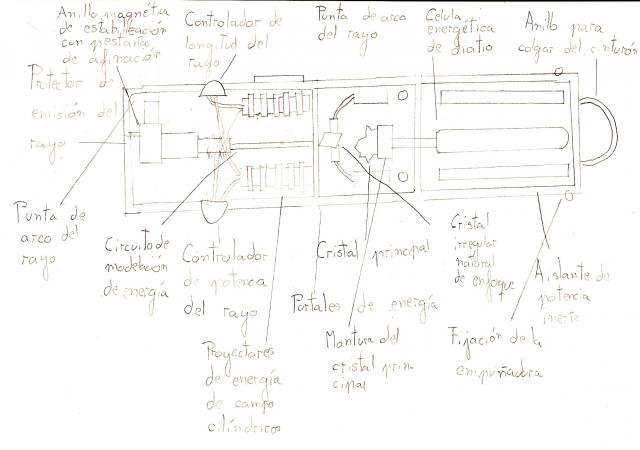 Anillo magnética
de estabilización
con pestaña
de afinación
Controlador de
longitud del
rayo
Punta de arco
del rayo
Célula
energética
de diatio
Anillo para
colgar del cinturón
Protector de
emisión del
rayo
Punta de
arco del
rayo
Circuito de
modelación
de energía
Controlador
de potencia
del rayo
Proyectores
de energía
de campo
cilíndricos
Cristal principal
Portales de energía
Montura del
cristal prin-
cipal
Cristal
irregular
natural
de enfoque
Aislante de
potencia
inerte
Fijación de la
empuñadura